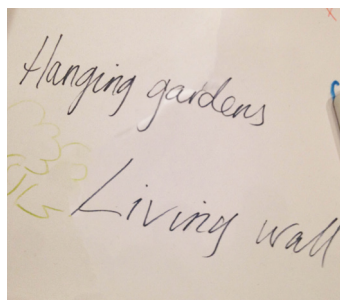 Hanging gardens
Living wall